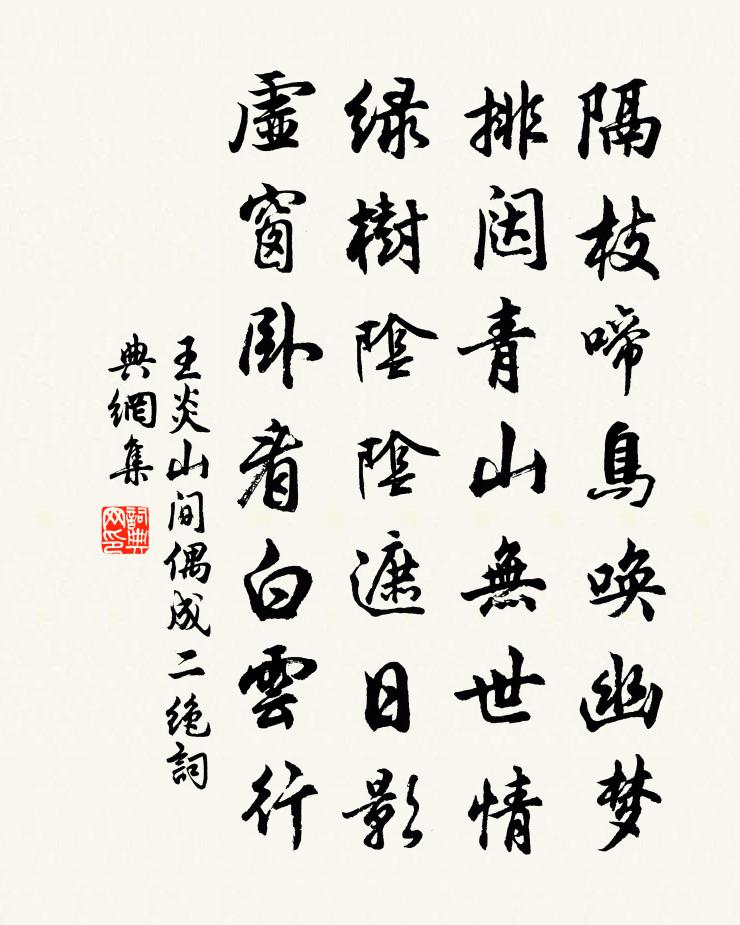 隔枝啼鳥喚幽梦
排闼青山無世情
緑樹陰陰遮日影
虛窗卧看白雲行
王炎山间偶成二绝詞
典網集
詞典
网印